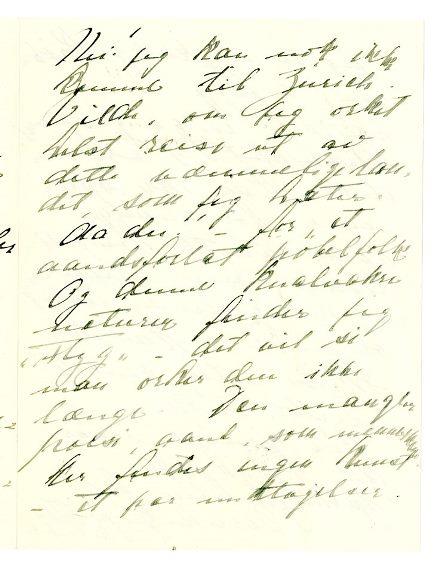 Nu! jeg kan nok ikke
komme til Zürich.
Vilde, om jeg orket
helst reise ut av
dette væmmelige lan-
det, som jeg hater.
Aa du! - for et
aandsforlatt pøbelfolk
Og denne knalvakre
naturen finder jeg
"stygg" - det vil si
man orker den ikke
længe. Den mangler
poesi, aand, som mennesker
her findes ingen kunst
- et par undtagelser.